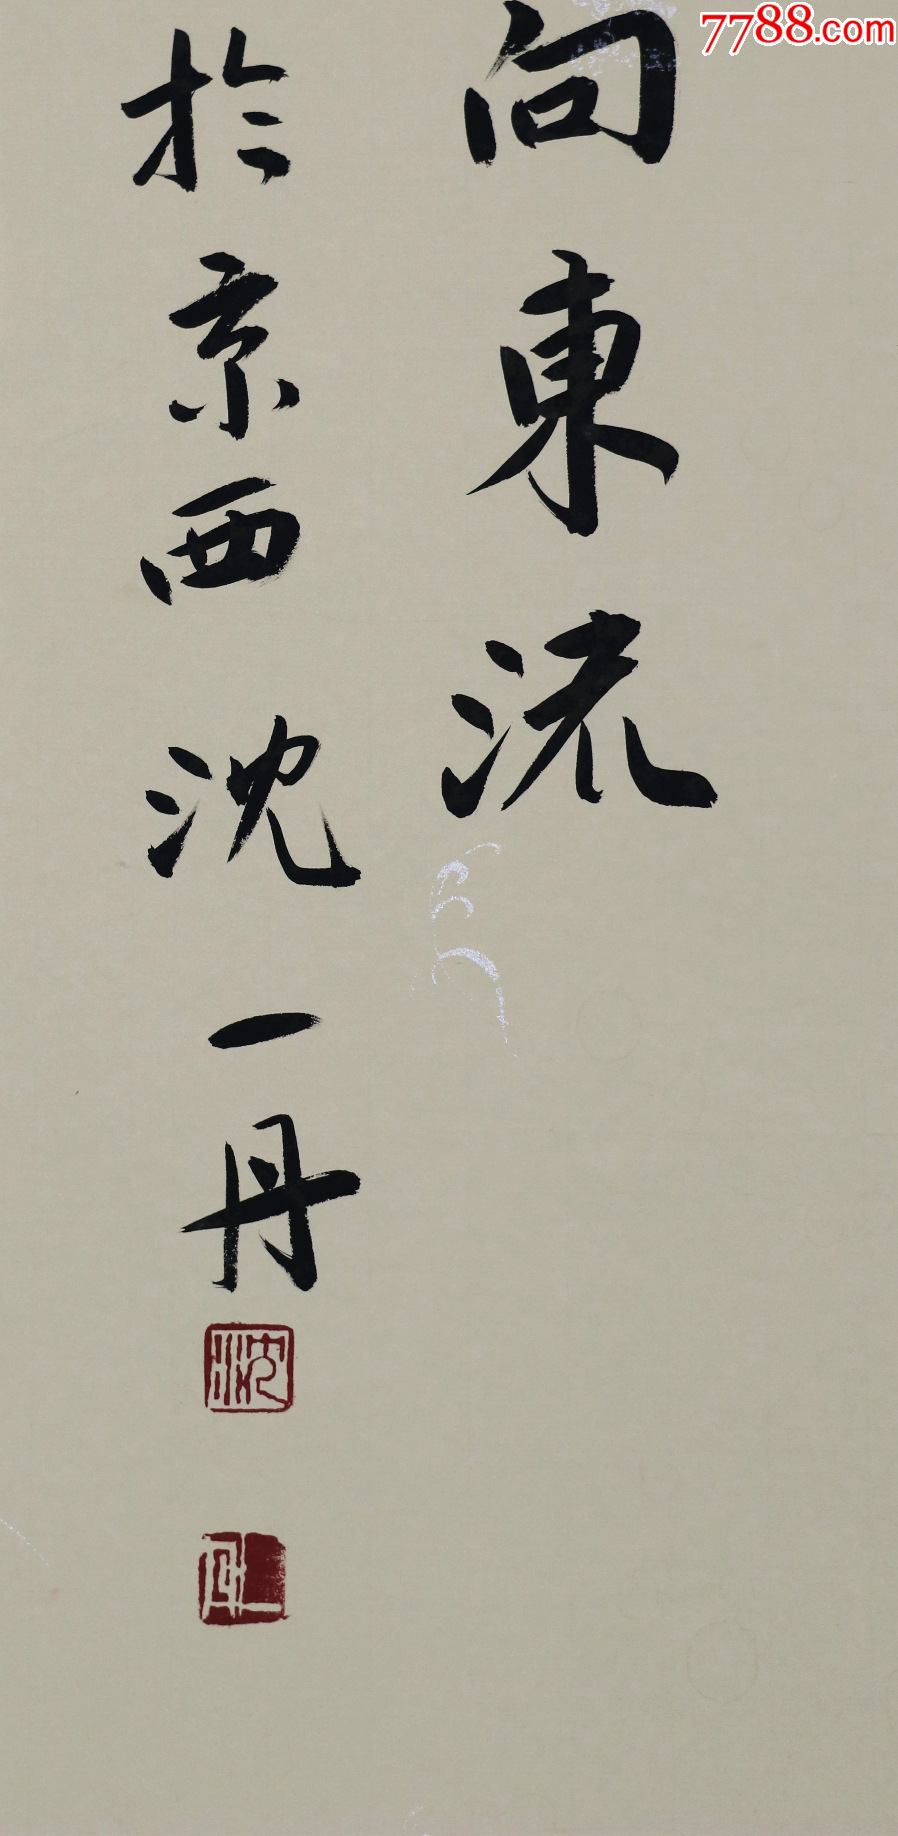 7788.com
向東流
於京西沈一丹
沈